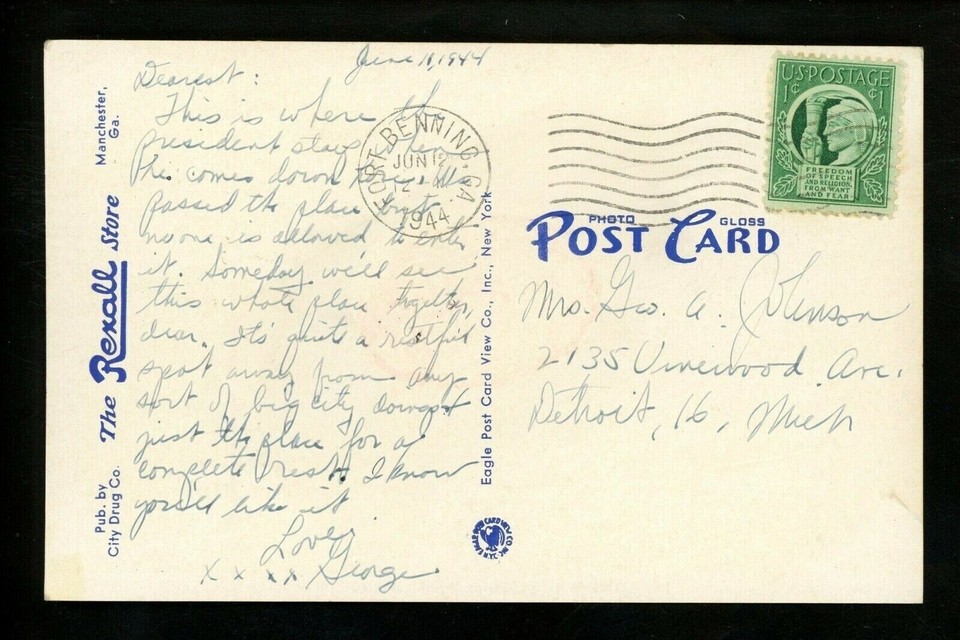 June 11, 1944
Dearest :
This is where the
president stays when
he comes down here. We
passed the place but
no one is allowed to enter
it. Someday we'll see
this whole place together,
dear. It's quite a restful
spot away from any
sort of big city doings &
just the place for a
complete rest. I know
you'll like it
Love,
x x x x George
FORT BENNING, GA.
JUN 12
12
1944
U.S. POSTAGE
1¢ ¢1
FREEDOM
OF SPEECH
AND RELIGION,
FROM WANT
AND FEAR
PHOTO GLOSS
POST CARD
Mrs. Geo. A. Johnson
2135 Vinewood Ave.
Detroit, 16, Mich
Pub. by
City Drug Co.
The Rexall Store
Manchester,
Ga.
Eagle Post Card View Co., Inc., New York